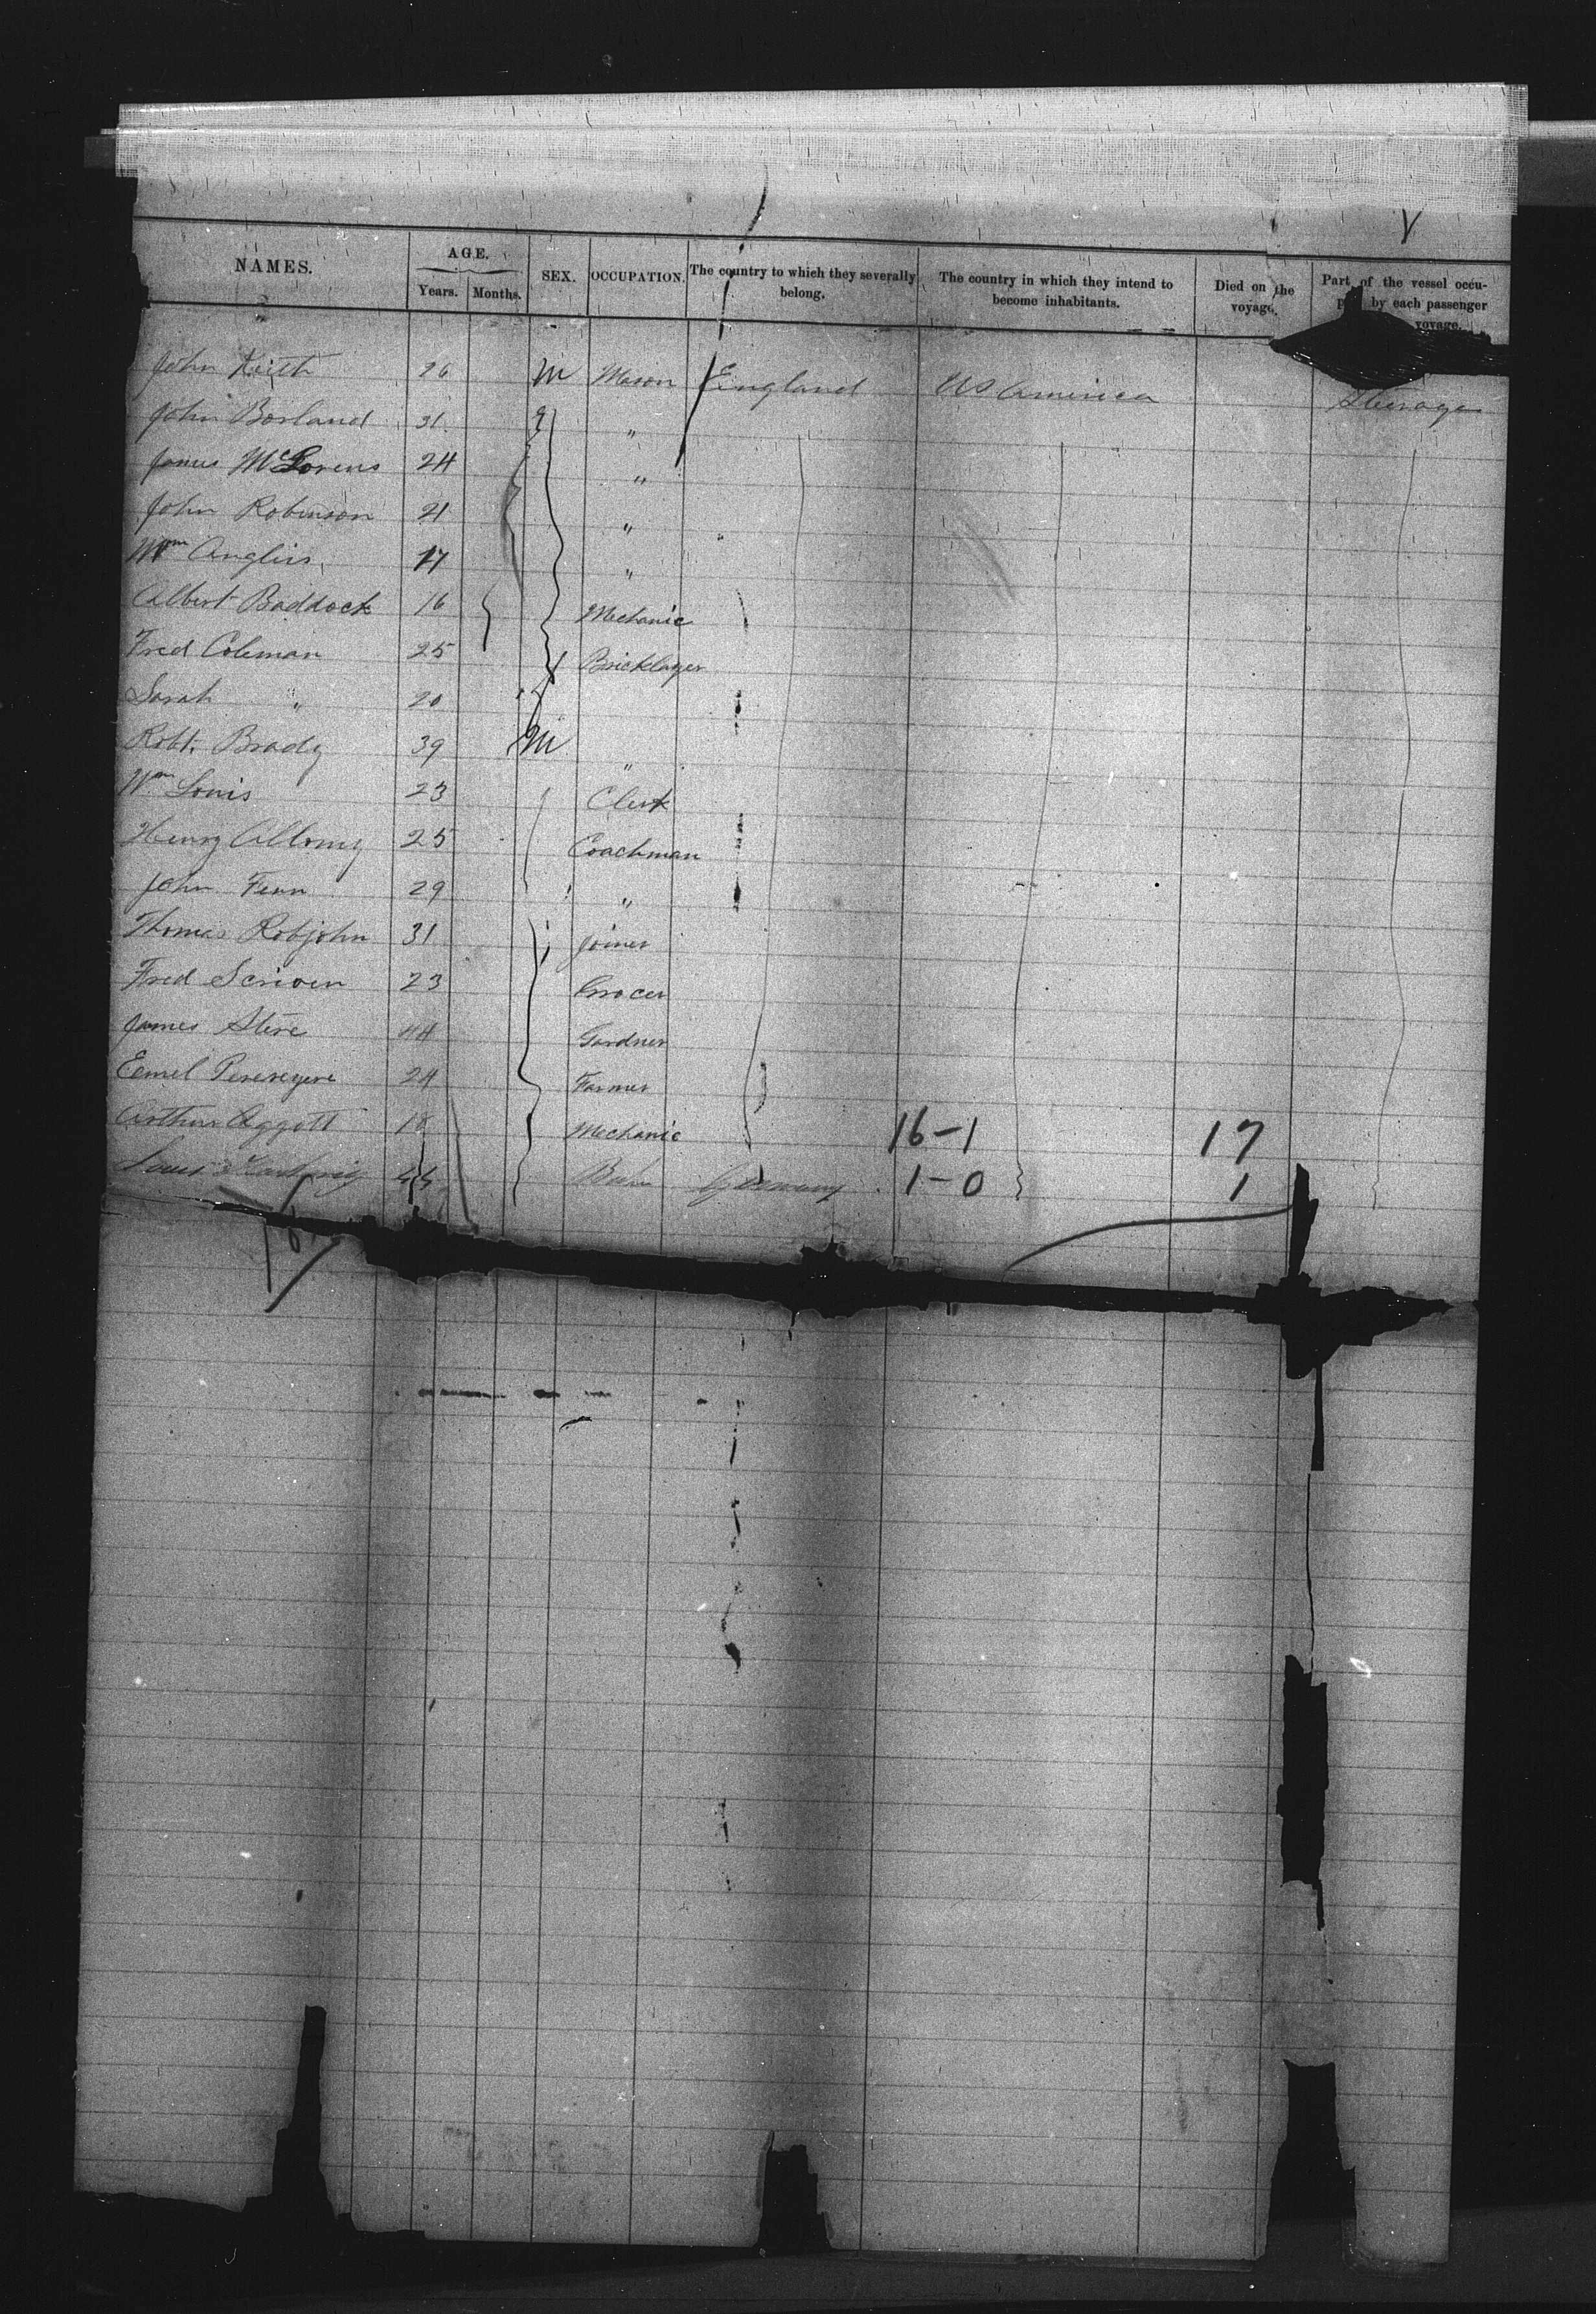 NAMES. AGE. SEX. OCCUPATION. The country to which they severally belong. The country in which they intend to become inhabitants. Died on the voyage. Part of the vessel occu- by each passenger voyage.
Years. Months.
John Keith 26 M Mason England US America Steerage
John Borland 31 "
James McLorens 24 "
John Robinson 21 "
Wm Anglis 17 "
Albert Baddock 16 Mechanic
Fred Coleman 25 Bricklayer
Sarah " 20
Robt. Brady 39 M "
Wm Louis 23 Clerk
Henry 25 Coachman
John Fenn 29 "
Thomas Robjohn 31 Joiner
Fred Scriven 23 Grocer
James Stere 44 Gardner
Eemel 24 Farmer
Arthur Aggott 18 Mechanic 16-1 17
Louis 44 Germany 1-0 1